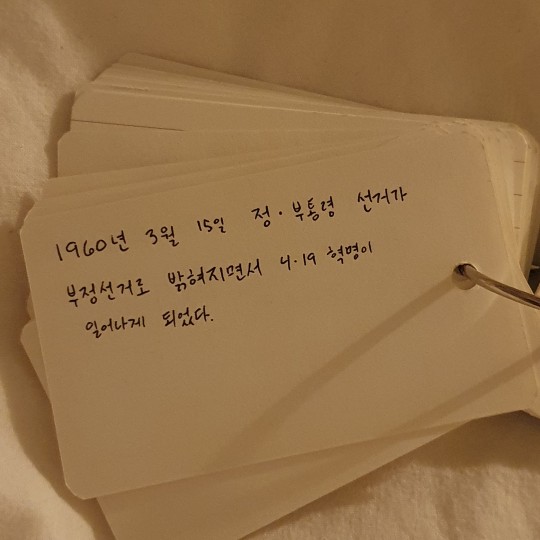 1960년 3월 15일 정·부통령 선거가
부정선거로 밝혀지면서 4·19 혁명이
일어나게 되었다.